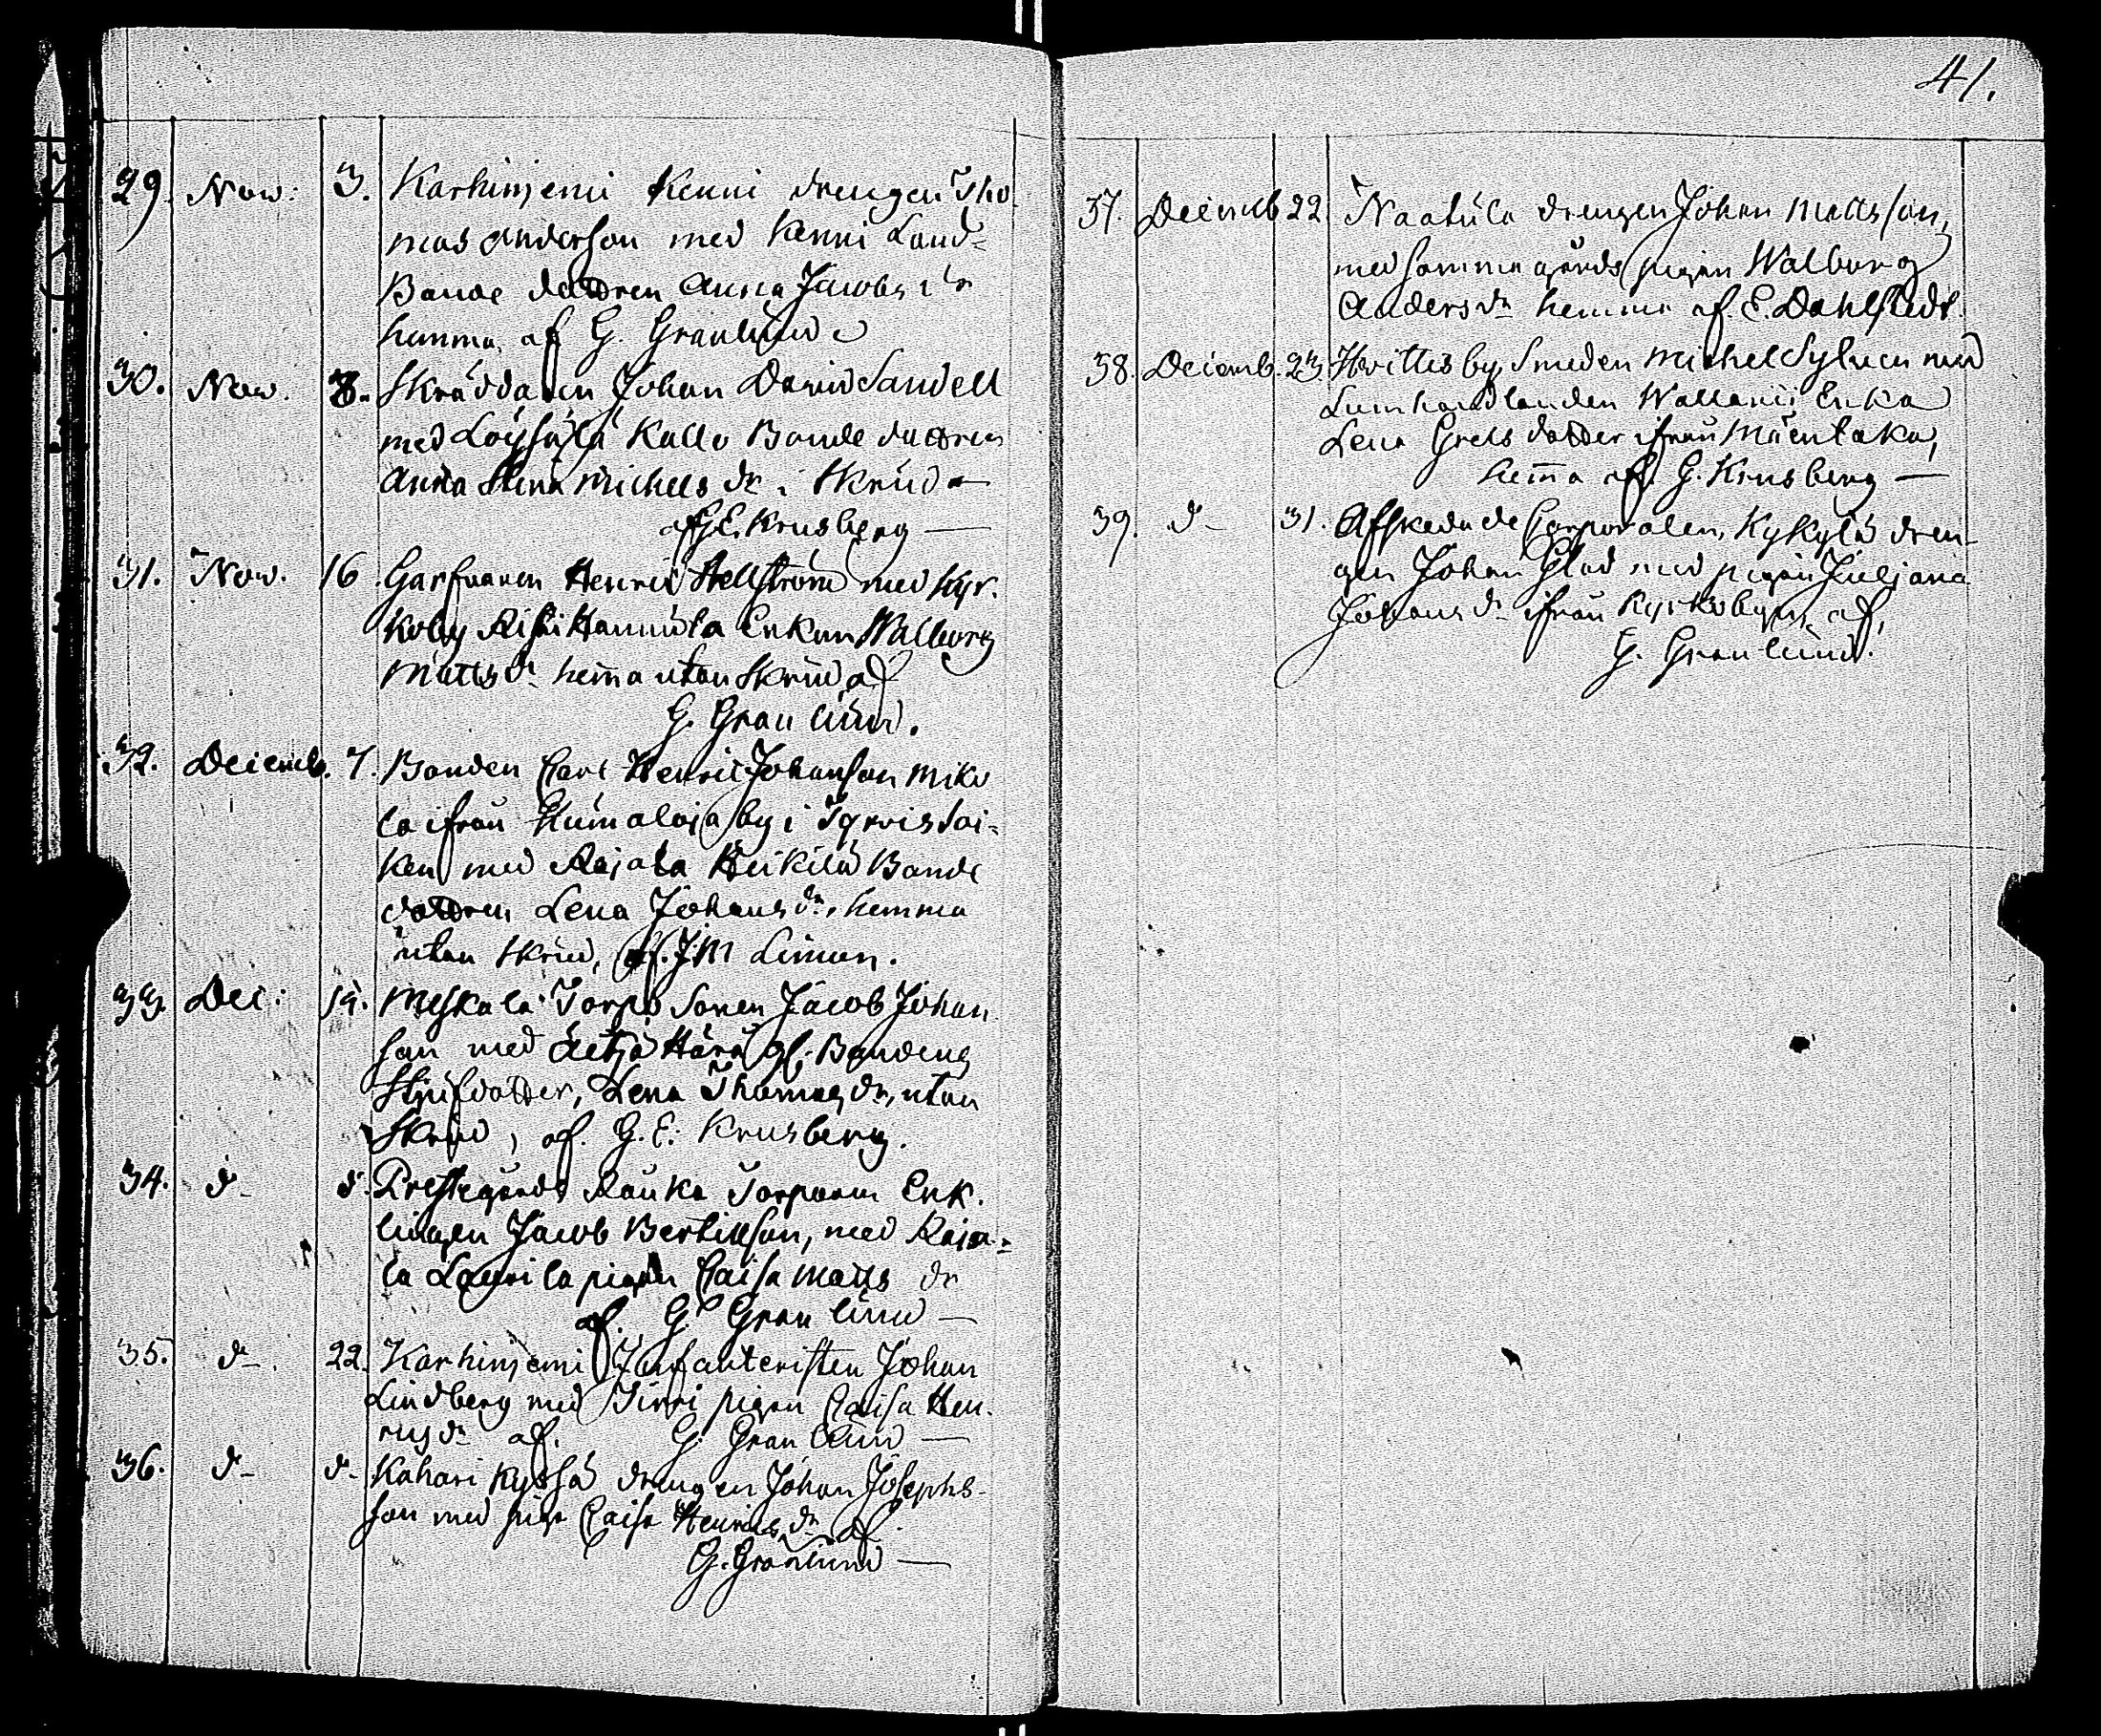 41.
29. Nov: 3. Karhinjemi Kenni drengen Tho
mas Anderson med Kenni Land=
Bonde dottren Anna Jacobs dr
hemma af G. Granlund
30. Nov. 8. Skräddaren Johan David Sandell
med Loysälä Kallo Bonde dottren
Anna Stina Michels dr i Skrud
af G E. Krusberg —
31. Nov. 16. Garfvaren Henric Hellström med Kyr.
koby Hannula Enkan Walborg
Matts dr hem̅a utan Skrud af
G. Granlund.
32. Decemb. 7. Bonden Carl Henric Johanson Miko
la ifrån Humaloja by i Tyrvis Soc=
ken med Rajala Heikilä Bonde
dottren Lena Johans dr, hemma
utan Skrud, af. J M Limon.
33. Dec: 14. Meskala Torp Sonen Jacob Johan
son med Hära gl. Bondens
Stjufdotter, Lena Thomas dr, utan
Skrud, af. G. E: Krusberg.
34. d- d. Prestegårds Rauka Torparen Enk.
lingen Jacob Bertillson, med Raja=
la Laurila pigan Caisa Matts dr
af. G. Granlund —
35. d-. 22. Karhinjemi Infanteristen Johan
Lindberg med Jirri pigan Caisa Hen.
rics dr af. G. Granlund —
36. d- d- Kahari Kyssä drengen Johan Josephs-
son med piga Caisa Henrics dr af
G. Granlund —
37. Decemb 22 Naatula drengen Johan Mattsson,
med samma gårds pigan Walborg
Anders dr hemma af. E. Dahlstedt.
38. Decemb. 23 Hvittis by Smeden Michel Sylven med
Lumhandlanden Wallenii Enka
Lena Grels dotter ifrån Mäentaka,
hem̅a af. G. Krusberg —
39. d- 31. Afskedade Corporalen, Kykylä dren-
gen Johan Glad med pigan Juljana
Johans dr ifrån Kyrkobyn, af,
G. Granlund.